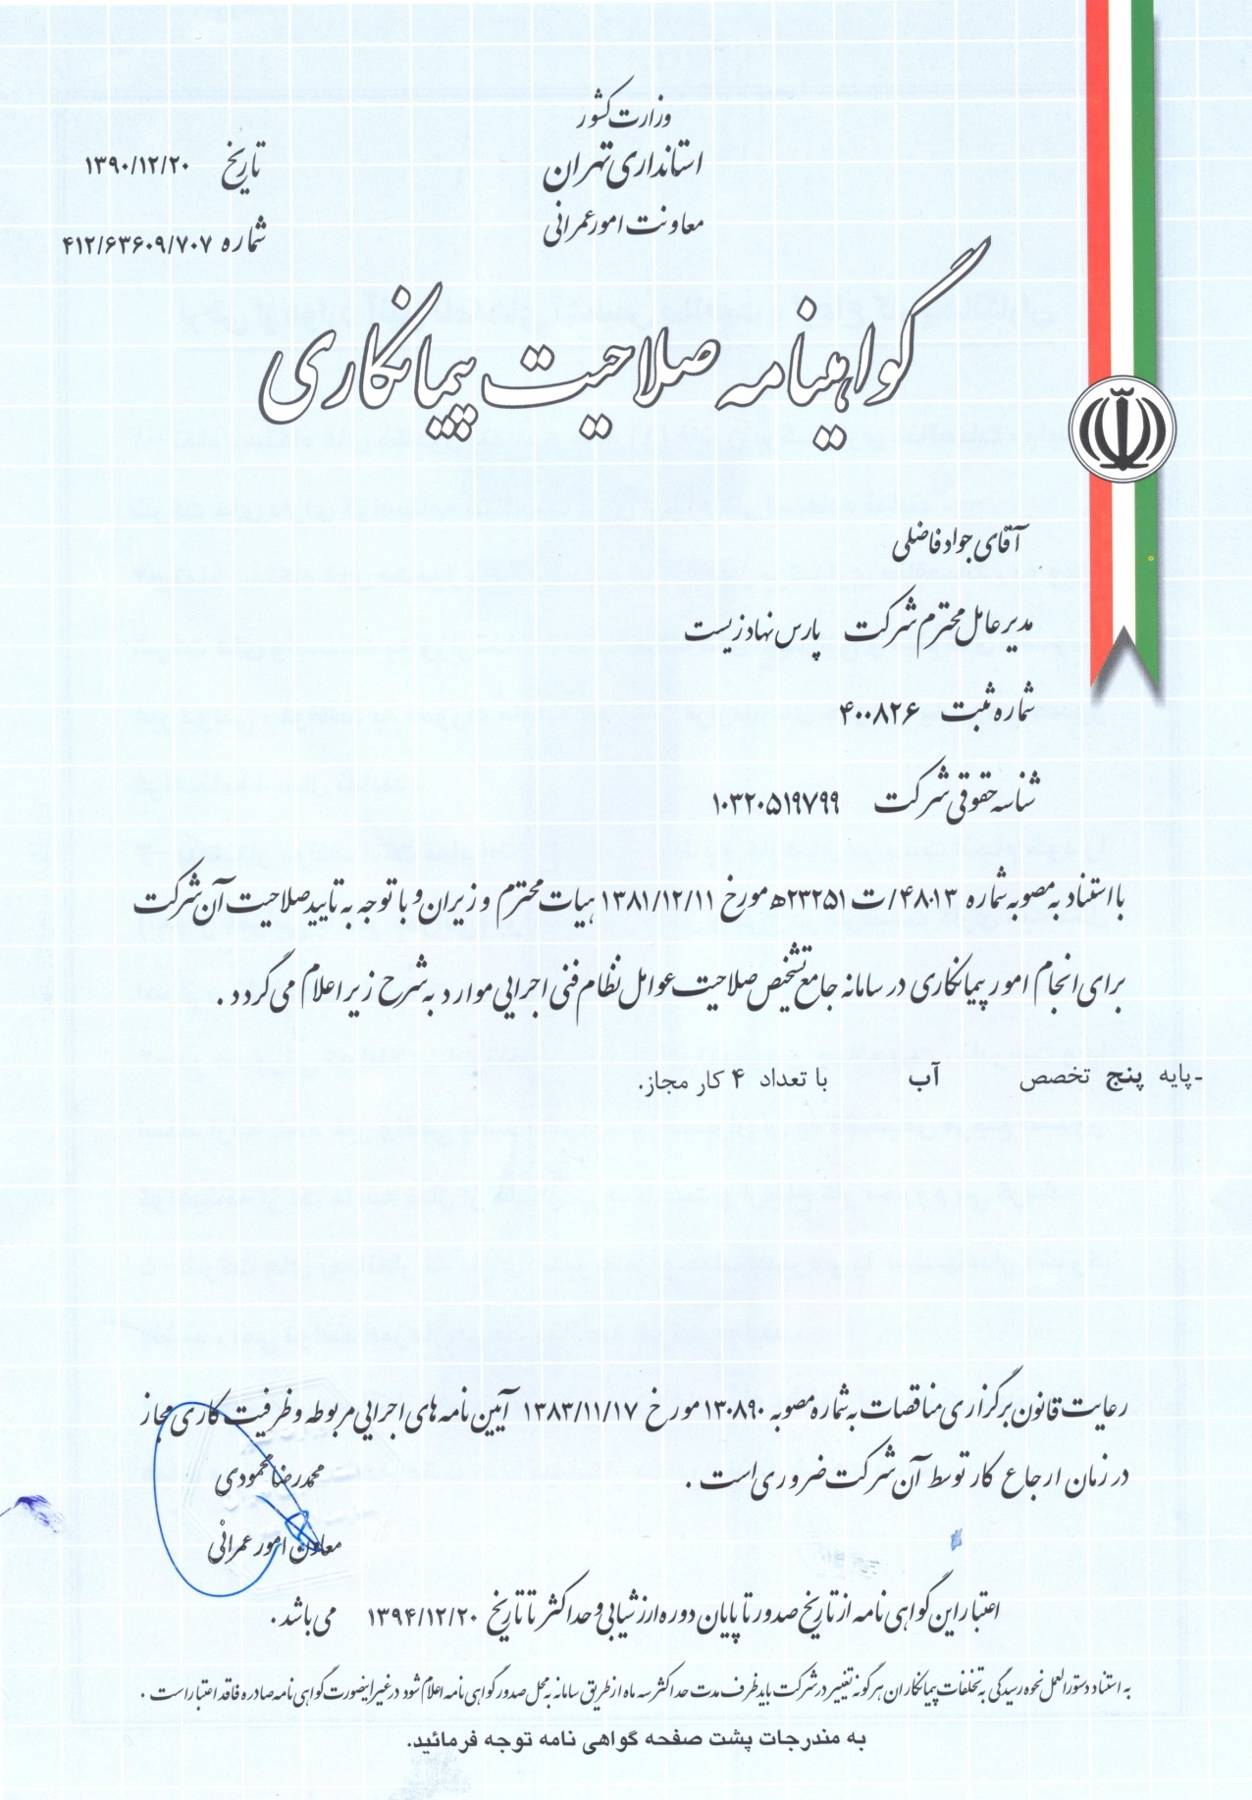 وزارت کشور
استانداری تهران
معاونت امور عمرانی
تاریخ ۱۳۹۰/۱۲/۲۰
شماره ۴۱۲/۶۳۶۰۹/۷۰۷
گواهینامه صلاحیت پیمانکاری
آقای جواد فاضلی
مدیر عامل محترم شرکت پارس نهاد زیست
شماره ثبت ۴۰۰۸۲۶
شناسه حقوقی شرکت ۱۰۳۲۰۵۱۹۷۹۹
با استناد به مصوبه شماره ۴۸۰۱۳/ت۲۳۲۵۱ه مورخ ۱۳۸۱/۱۲/۱۱ هیات محترم وزیران و با توجه به تایید صلاحیت آن شرکت
برای انجام امور پیمانکاری در سامانه جامع تشخیص صلاحیت عوامل نظام فنی اجرایی موارد به شرح زیر اعلام می گردد .
-پایه پنج تخصص آب با تعداد ۴ کار مجاز.
رعایت قانون برگزاری مناقصات به شماره مصوبه ۱۳۰۸۹۰ مورخ ۱۳۸۳/۱۱/۱۷ آیین نامه های اجرایی مربوطه و ظرفیت کاری مجاز
در زمان ارجاع کار توسط آن شرکت ضروری است .
محمدرضا محمودی
معاون امور عمرانی
اعتبار این گواهی نامه از تاریخ صدور تا پایان دوره ارزشیابی و حداکثر تا تاریخ ۱۳۹۴/۱۲/۲۰ می باشد .
به استناد دستورالعمل نحوه رسیدگی به تخلفات پیمانکاران هرگونه تغییر در شرکت باید ظرف مدت حداکثر سه ماه از طریق سامانه به محل صدور گواهی نامه اعلام شود در غیر اینصورت گواهی نامه صادره فاقد اعتبار است .
به مندرجات پشت صفحه گواهی نامه توجه فرمائید.